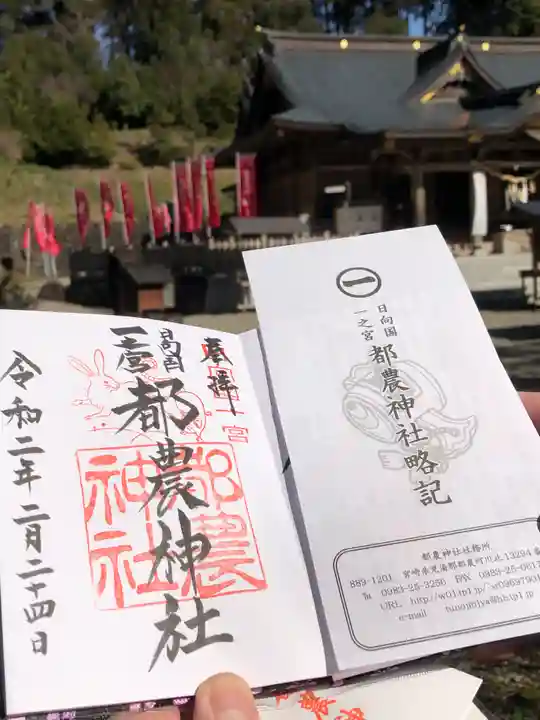 奉拝
日向国
一之宮
都農神社
令和二年二月二十四日
都農
神社
一
日向国
一之宮
都農神社略記
都農神社社務所
889-1201 宮崎県児湯郡都農町川北13294
℡ 0983-25-3256 FAX 0983-25-0617
URL http://w01.tp1.jp/
e-mail